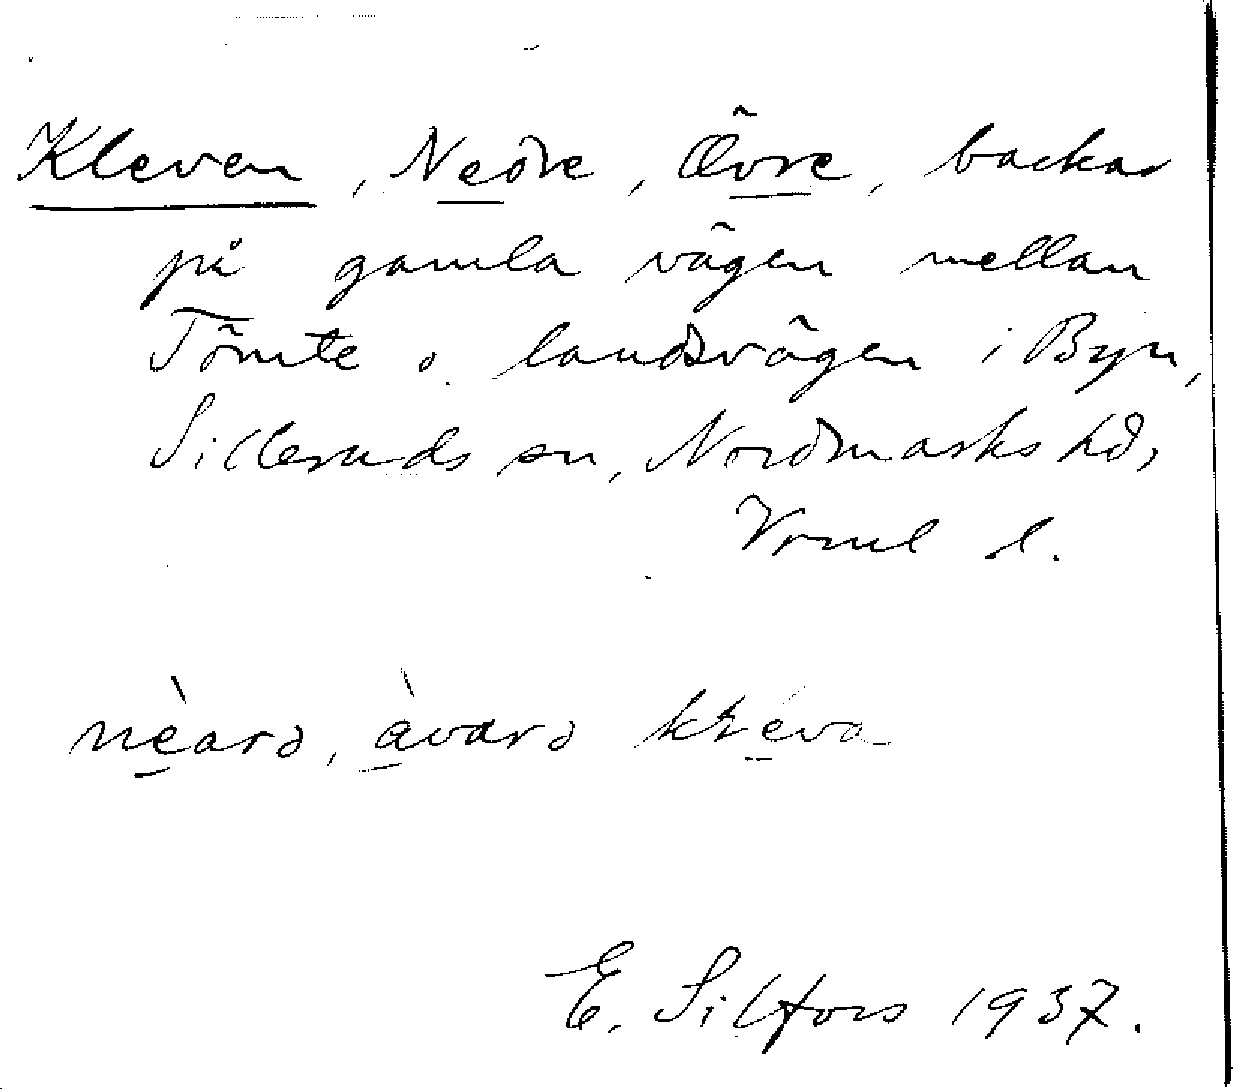 Kleven, Nedre, Övre, backar
på gamla vägen mellan
Tömte o. landsvägen i Byn,
Silleruds sn, Nordmarks hd,
Vrml l.
E. Silfors 1937.